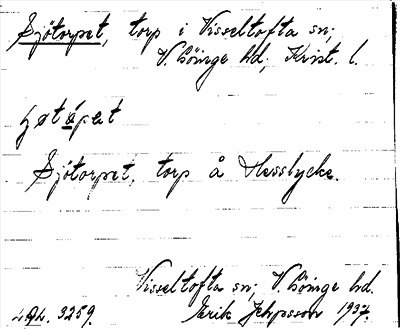 Sjötorpet, torp i Visseltofta sn;
V. Göinge hd; Krist. l.
Sjötorpet, torp å Hesslycke.
Visseltofta sn; V. Göinge hd.
3259. Erik Jeppsson 1937.